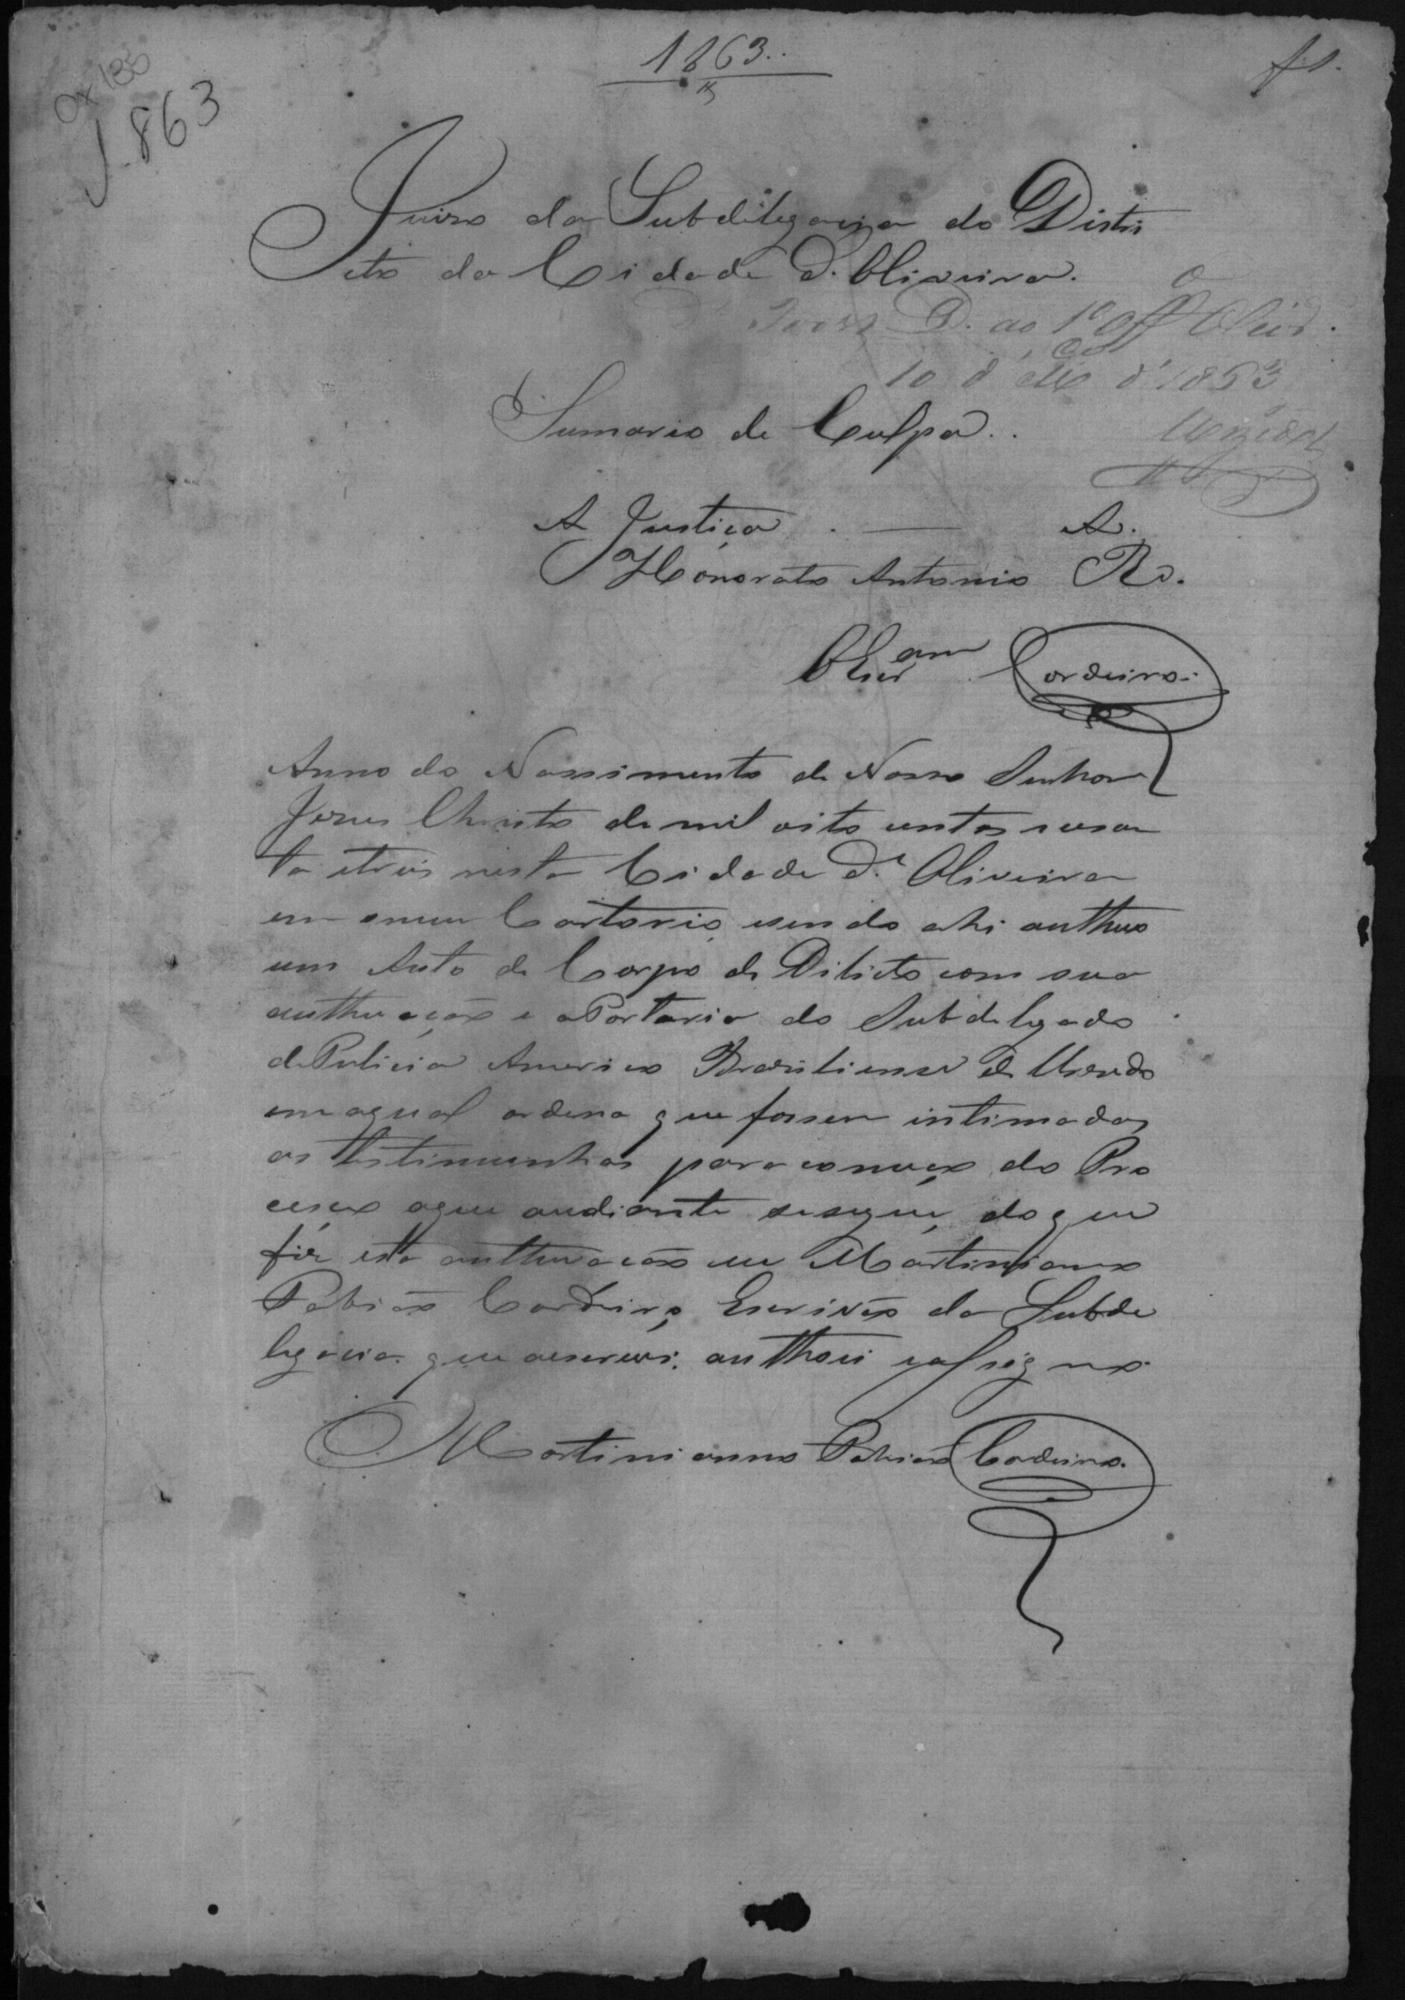 1863.
f. 1.
Cx 135
1.863
Juizo da Subdelegacia do Distri
cto da Cidade d'Oliveira.
D. ao 1º Off.º Oliv.
10 d' d' 1863
Sumario de Culpa..
A Justiça . — A.
Honorato Antonio Ro.
Cordeiro.
Anno do Nassimento de Nosso Senhor
Jesus Christo de mil oito centos secen
ta etres nesta Cidade d'Oliveira
em omeu Cartorio, esendo ahi authuo
um Auto de Corpo de Dilicto com sua
authuação e aPortaria do Subdelgado
dePulicia Americo Brasiliense de
em aqual ordena que fossem intimadas
as testimunhas para comêço do Pro
cesço aque audiante sesegue, do que
fiz esta authuacão eu Martinianno
Pabião Cordeiro Escrivão da Subde
legacia que oescrevi, authoei eassigno.
Martinianno Pabião Cordeiro.